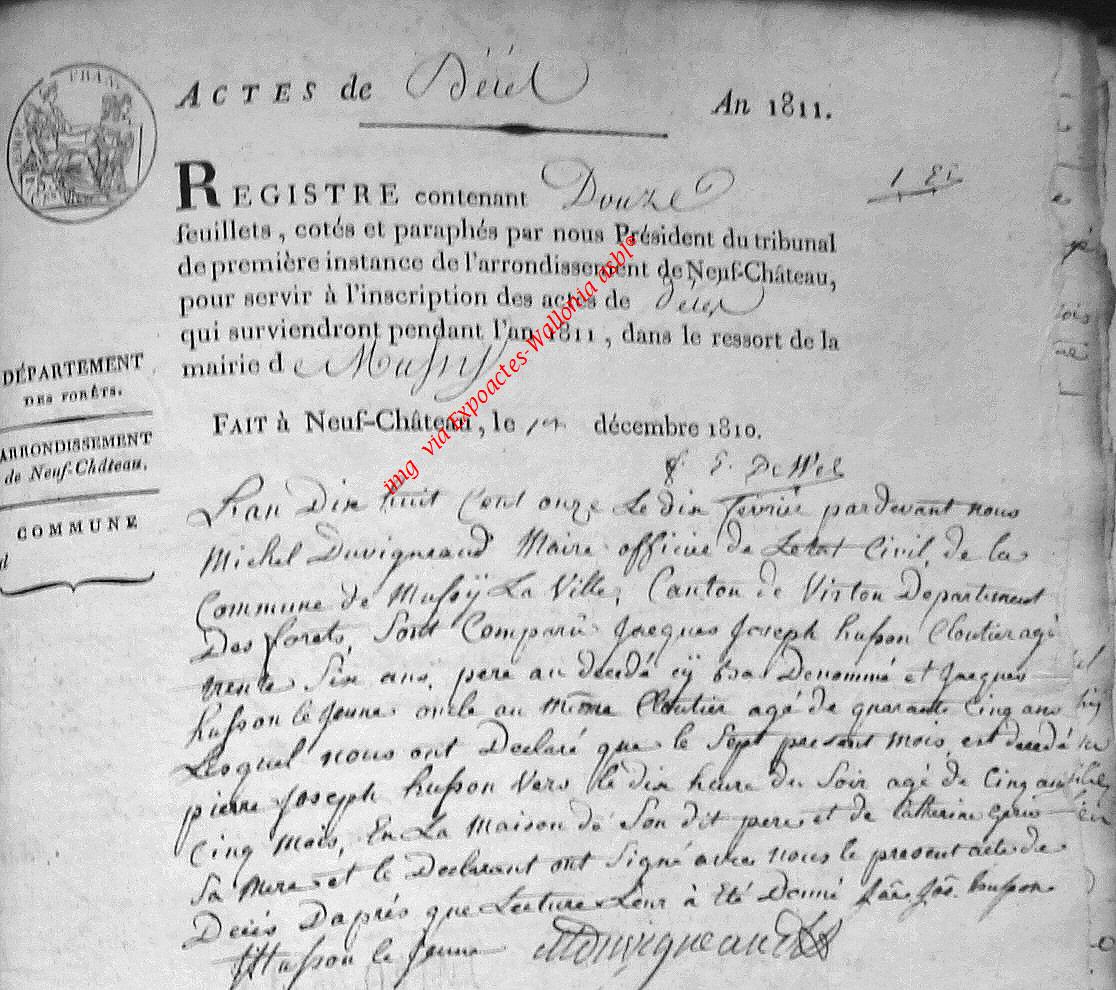 ACTES de Décès An 1811.
REGISTRE contenant Douze
feuillets, cotés et paraphés par nous Président du tribunal
de première instance de l'arrondissement de Neuf-Château,
pour servir à l'inscription des actes de Décès
qui surviendront pendant l'an 1811, dans le ressort de la
mairie de Mussy
FAIT à Neuf-Château, le 1er décembre 1810.
DÉPARTEMENT
DES FORÊTS.
ARRONDISSEMENT
de Neuf-Château.
COMMUNE
d
img via Expoactes-Wallonia asbl°
Lan Dix huit Cent onze Le dix fevrié pardevant nous
Michel Duvigneaud Maire officié de Letat Civil de la
Commune de Mussÿ La Ville, Canton de Virton Departement
Des forets, Sont Comparû Jacques Joseph husson Cloutier agé
trente Six ans, pere au decedé cÿ bas Denommé et Jacques
husson le Jeune oncle au même Cloutier agé de quarante Cinq ans
Lesquel nous ont Declaré que le Sept present mois est decedé
pierre Joseph husson Vers le dix heure du Soir agé de Cinq ans
Cinq Mois, En La Maison de Son dit pere et de Catherine
Sa Mere et le Declarant ont Signé avec nous le present acte de
Decés Daprés que Lecture Leur à Eté Donné husson
Husson le Jeune MDuvigneaud